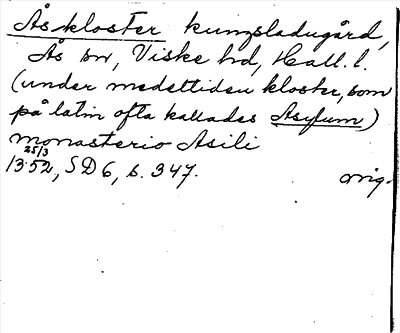 Åskloster kungsladugård,
Ås sn, Viske hd, Hall. l.
(under medeltiden kloster, som
på latin ofta kallades Asylum)
monasterio Asili
25/3
1352, SD 6, s. 347. orig.